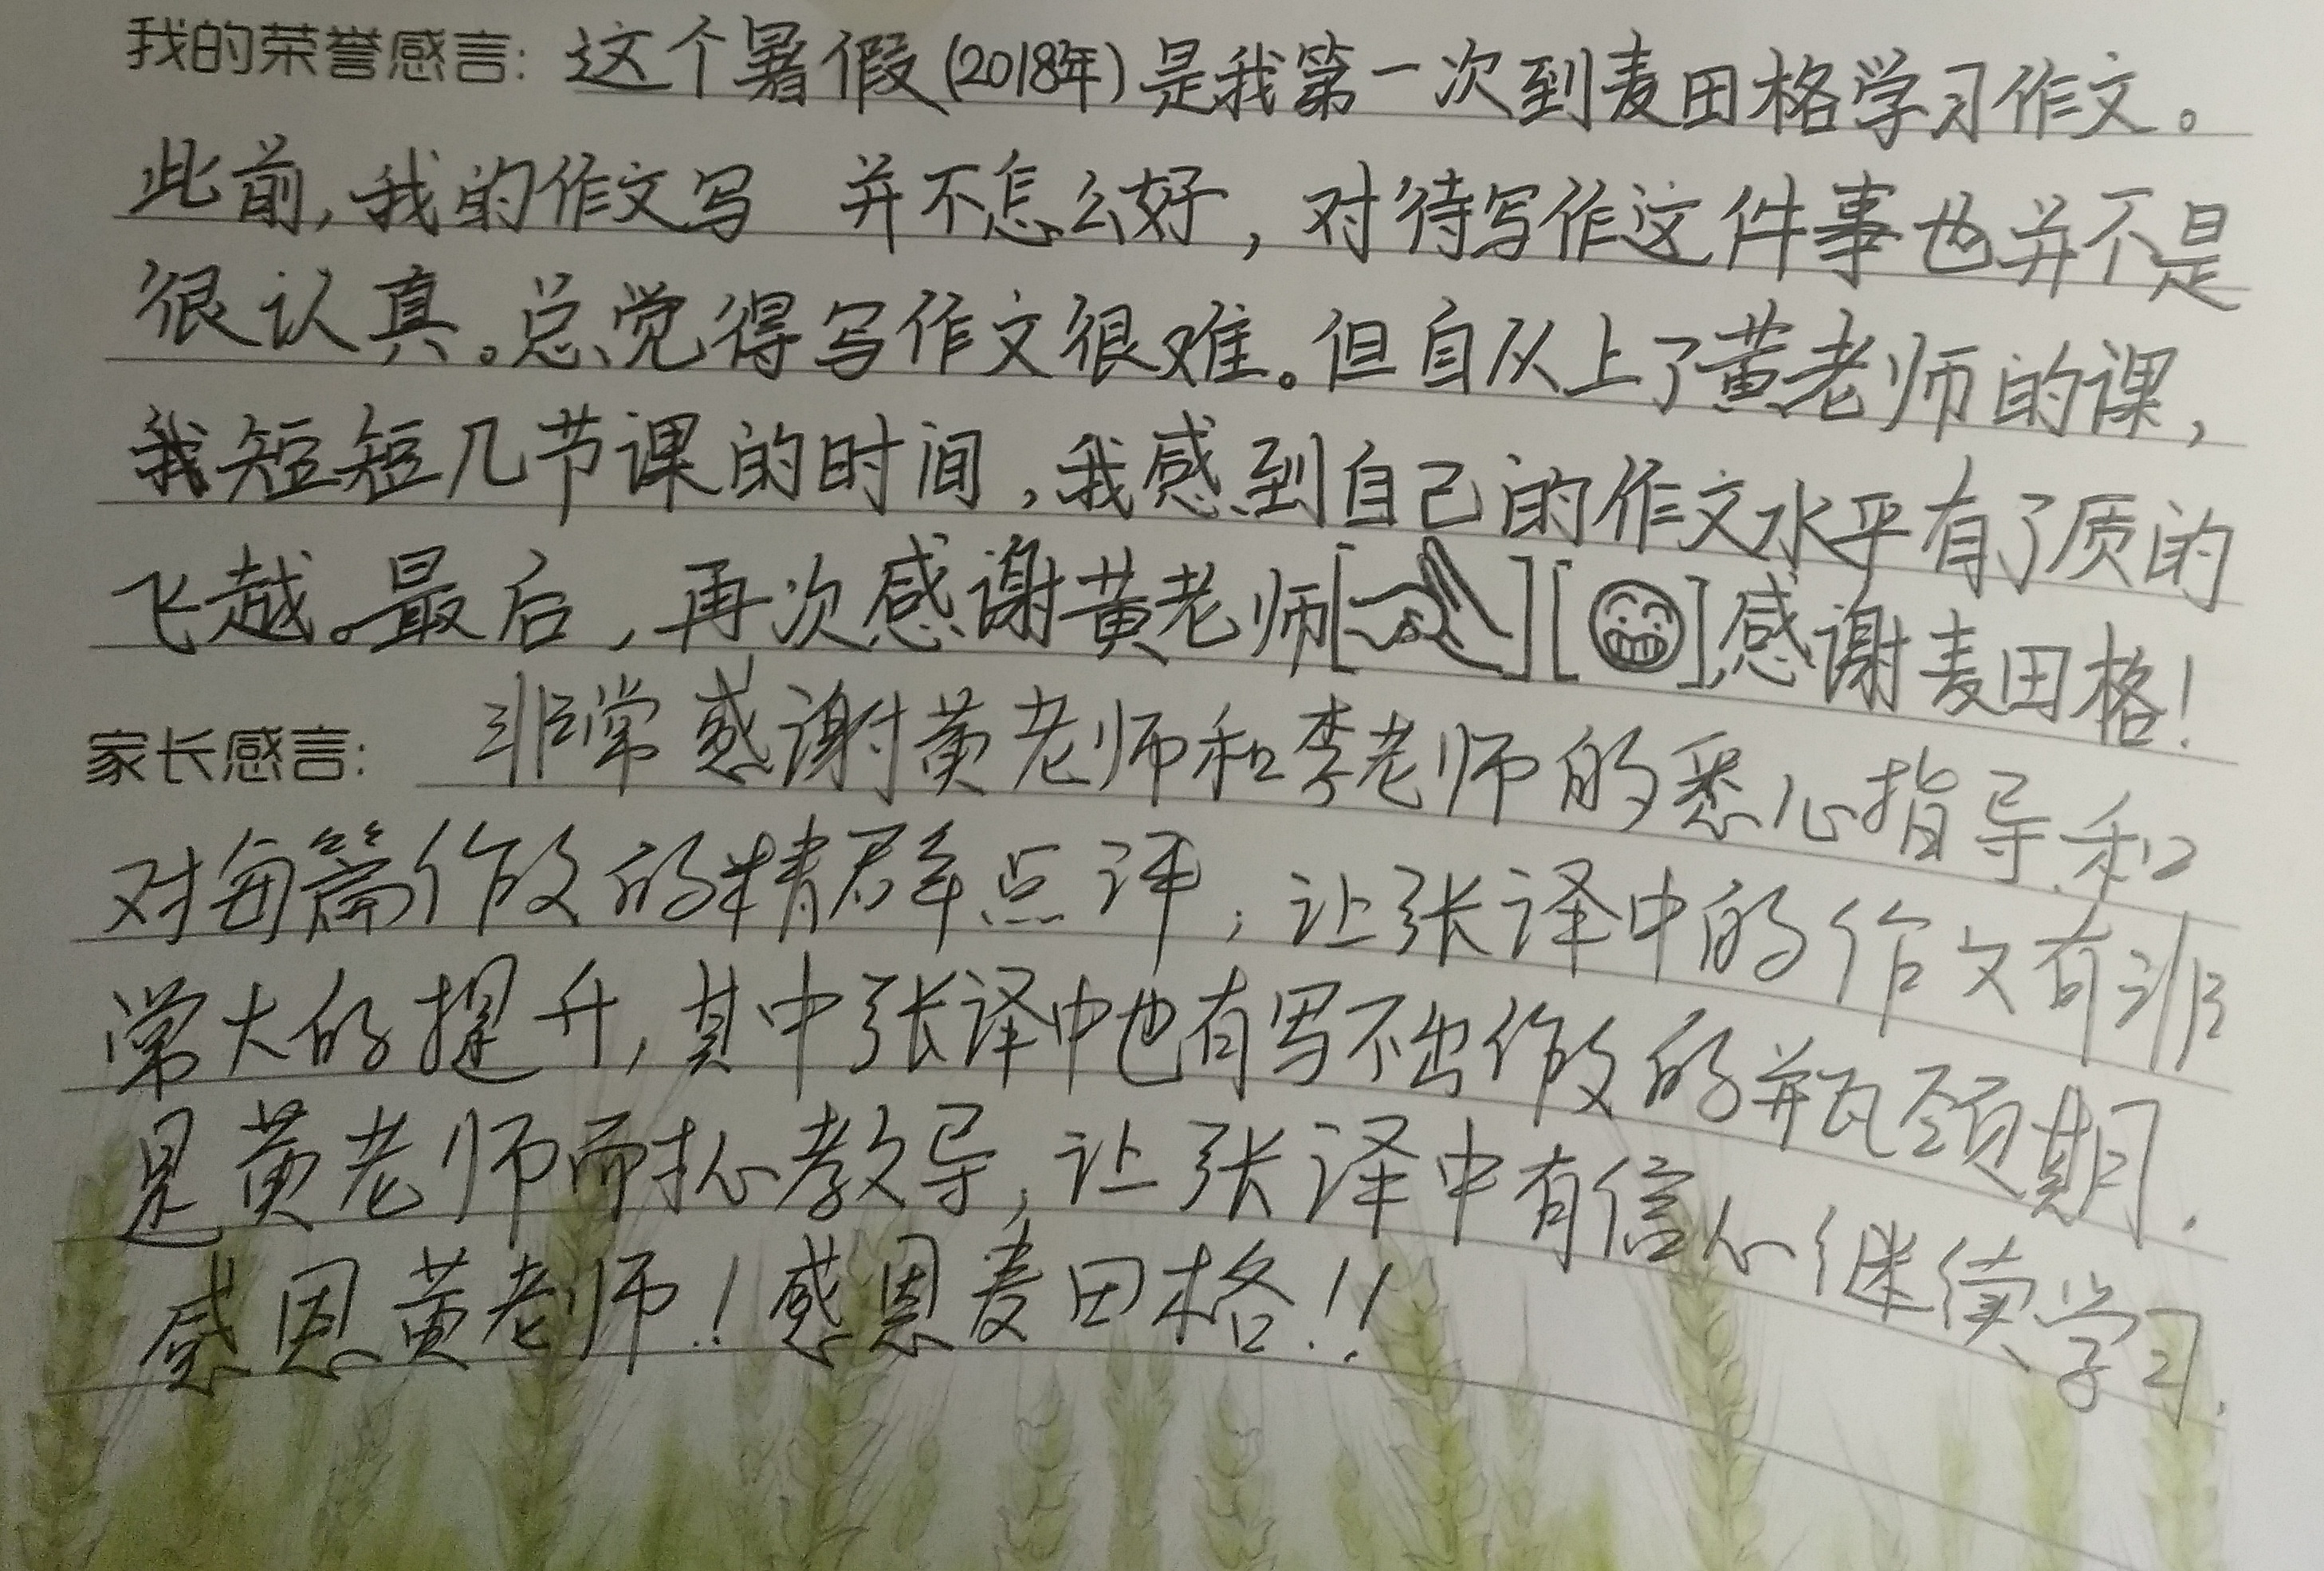 我的荣誉感言: 这个暑假(2018年)是我第一次到麦田格学习作文。
此前,我的作文写 并不怎么好,对待写作这件事也并不是
很认真。总觉得写作文很难。但自从上了黄老师的课,
我短短几节课的时间,我感到自己的作文水平有了质的
飞越。最后,再次感谢黄老师[][],感谢麦田格!
家长感言: 非常感谢黄老师和李老师的悉心指导和
对每篇作文的精群点评,让张译中的作文有非
常大的提升,其中张译中也有写不出作文的瓶颈期.
是黄老师耐心教导,让张译中有信心继续学习.
感恩黄老师!感恩麦田格!!